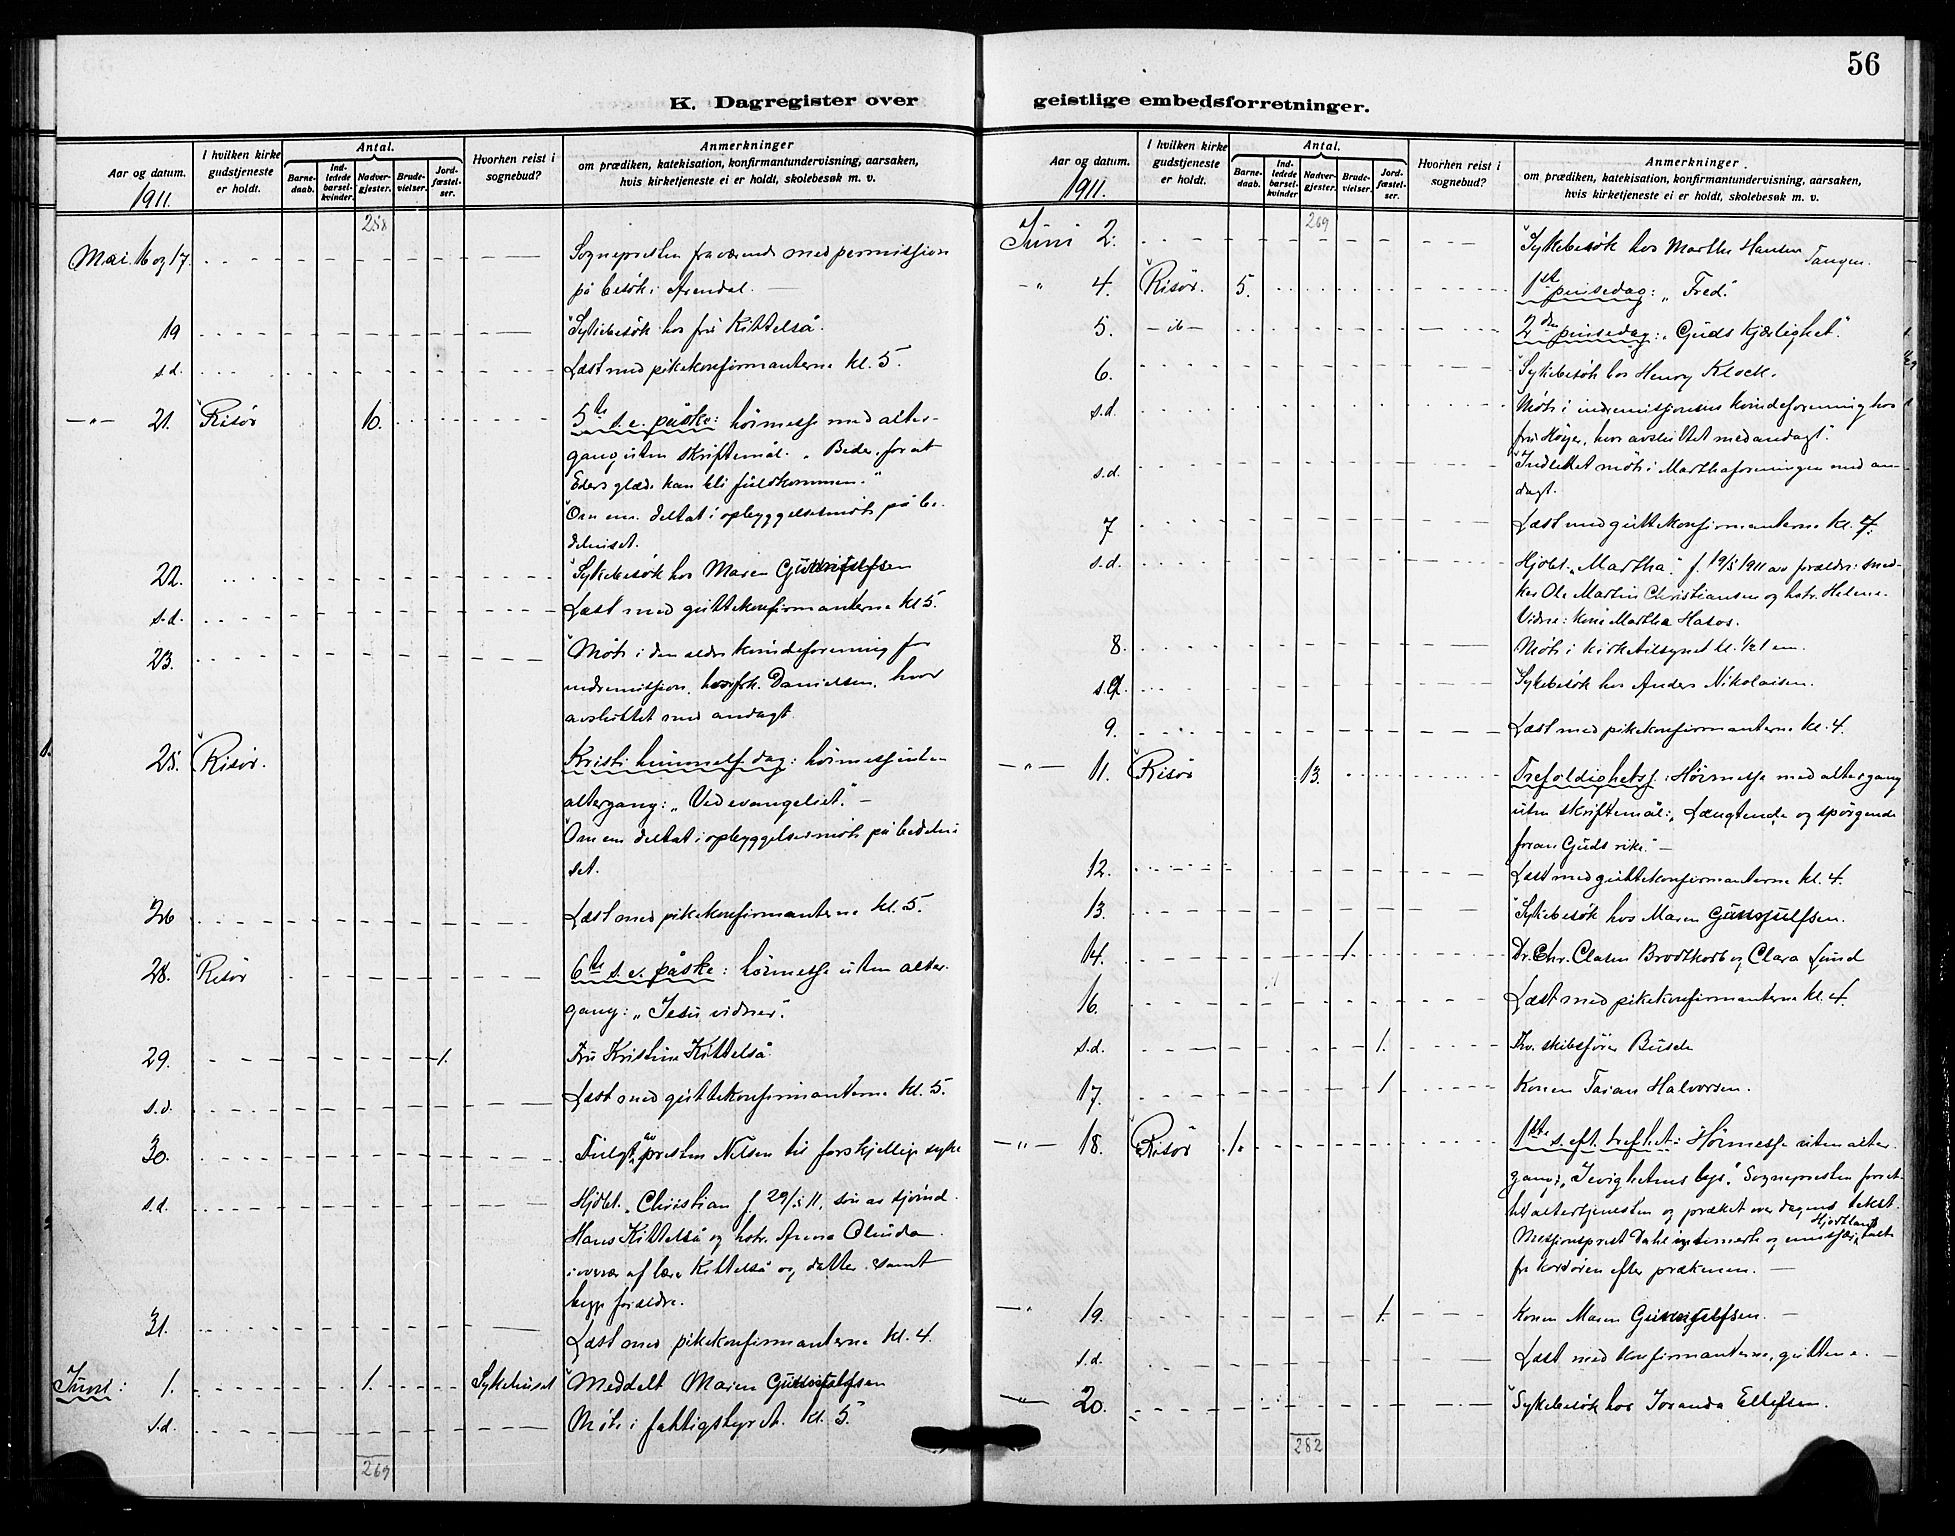 56
K. Dagregister over geistlige embedsforretninger.
Aar og datum. 1911.
I hvilken kirke gudstjeneste er holdt.
Antal.
Barnedaab.
Indledede barselkvinder.
Nadvergjester.
Brudevielser.
Jordfæstelser.
Hvorhen reist i sognebud?
Anmerkninger
om prædiken, katekisation, konfirmantundervisning, aarsaken,
hvis kirketjeneste ei er holdt, skolebesøk m. v.
258
Mai. 16 og 17. Sognepresten fraværende med permission
på besök i Arendal. —
19 Sykebesök hos fru Kittelså.
s.d. Læst med pikekonfirmanterne kl. 5.
—„— 21. Risör 10. 5te s. e. påske: höimesse med alter-
gang uten skriftemål. „Beder, for at
Eders glæde kan bli fuldkommen."
Om em. deltat i opbyggelsesmöte på be-
dehuset.
22. Sykebesök hos Maren Gunnufsen
s.d. Læst med guttekonfirmanterne kl 5.
23. Möte i den eldre kvindeforening for
indremission, hos frk. Danielsen, hvor
avsluttet med andagt.
25. Risör. Kristi himmelf. dag: höimesse uten
altergang: „Ved evangeliet." —
Om em deltat i opbyggelsesmöte på bedehu-
set.
26 Læst med pikekonfirmanterne kl. 5.
28. Risör 6te s. e. påske: höimesse uten alter-
gang: „Jesu vidner".
29. 1. Fru Kristine Kittelså.
s.d. Læst med guttekonfirmanterne kl. 5.
30. Fulgt presten Nilsen til forskjellige syke
s.d. Hjdbt. „Christian f. 29/5 11, sön av sjömd.
Hans Kittelså og hstr. Anna Olinda.
i overvær af lærer Kittelså og datter samt
begge forældre.
31. Læst med pikekonfirmanterne kl. 4.
Juni: 1. 1. Sykehuset Meddelt Maren Gunnufsen
s.d. Möte i fattigstyret. kl. 5.
269
Aar og datum. 1911.
I hvilken kirke gudstjeneste er holdt.
Antal.
Barnedaab.
Indledede barselkvinder.
Nadvergjester.
Brudevielser.
Jordfæstelser.
Hvorhen reist i sognebud?
Anmerkninger
om prædiken, katekisation, konfirmantundervisning, aarsaken,
hvis kirketjeneste ei er holdt, skolebesøk m. v.
269
Juni 2. Sykebesök hos Marthe Hansen Tangen.
—„ 4. Risör. 5. 1ste pinsedag: „Fred."
5. — ib — 2den pinsedag: „Guds kjærlighet."
6. Sykebesök hos Henry Klock.
s.d. Möte i indremissionens kvindeforening hos
fru Höyer, hvor avsluttet med andagt.
s.d. Indledet möte i Marthaforeningen med an-
dagt.
7 Læst med guttekonfirmanterne kl. 4.
s.d. Hjdbt. „Martha" f. 19/5 1911 av forældre: sned-
ker Ole Martin Christiansen og hstr. Helene.
Vidne: kone Martha Hasos.
8. Möte i kirketilsynet kl. 1/2 1 em.
s.d. Sykebesök hos Anders Nikolaisen.
9. Læst med pikekonfirmanterne kl. 4.
—„— 11. Risör 13. Trefoldighetsf.: Höimesse med altergang
uten skriftemål: „Længtende og spörgende
foran Guds rike." —
12. Læst med guttekonfirmanterne kl. 4.
13. Sykebesök hos Maren Gunnufsen.
14. 1. Dr. Chr. Clasen Brodtkorb og Clara Lund
16. Læst med pikekonfirmanterne kl. 4.
s.d. 1. Fhv. skibsförer Busch
17. 1 Konen Taran Halvorsen.
—„— 18. Risör 1. 1ste s. eft. trefhet.: Höimesse uten alter-
gang: „I evighetens lys". Sognepresten forret-
tet altertjenesten og præket over dagens tekst.
Missionsprest Dahl intimerte og emissær Hjortland talte
fra kordören efter prækenen. —
—„ 19. 1. Konen Maren Gunnufsen. —
s.d. Læst med konfirmanterne, guttene. —
—„— 20. Sykebesök hos Joranda Ellefsen.
282